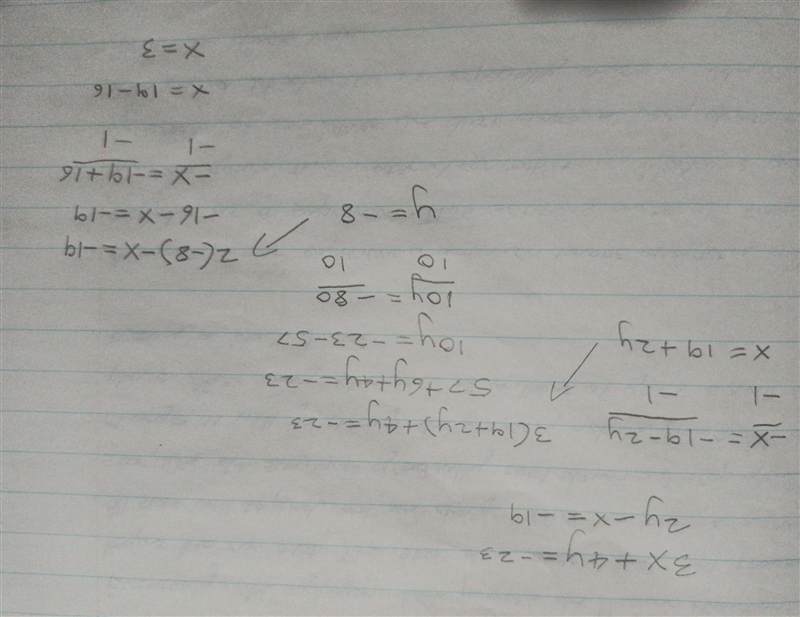 3x + 4y = -23
2y - x = -19
-x = -19 - 2y
-1 -1
x = 19 + 2y
3(19+2y) + 4y = -23
57 + 6y + 4y = -23
10y = -23 - 57
10y = -80
10 10
y = -8
2(-8) - x = -19
-16 - x = -19
-x = -19 + 16
-1 -1
x = 19 - 16
x = 3